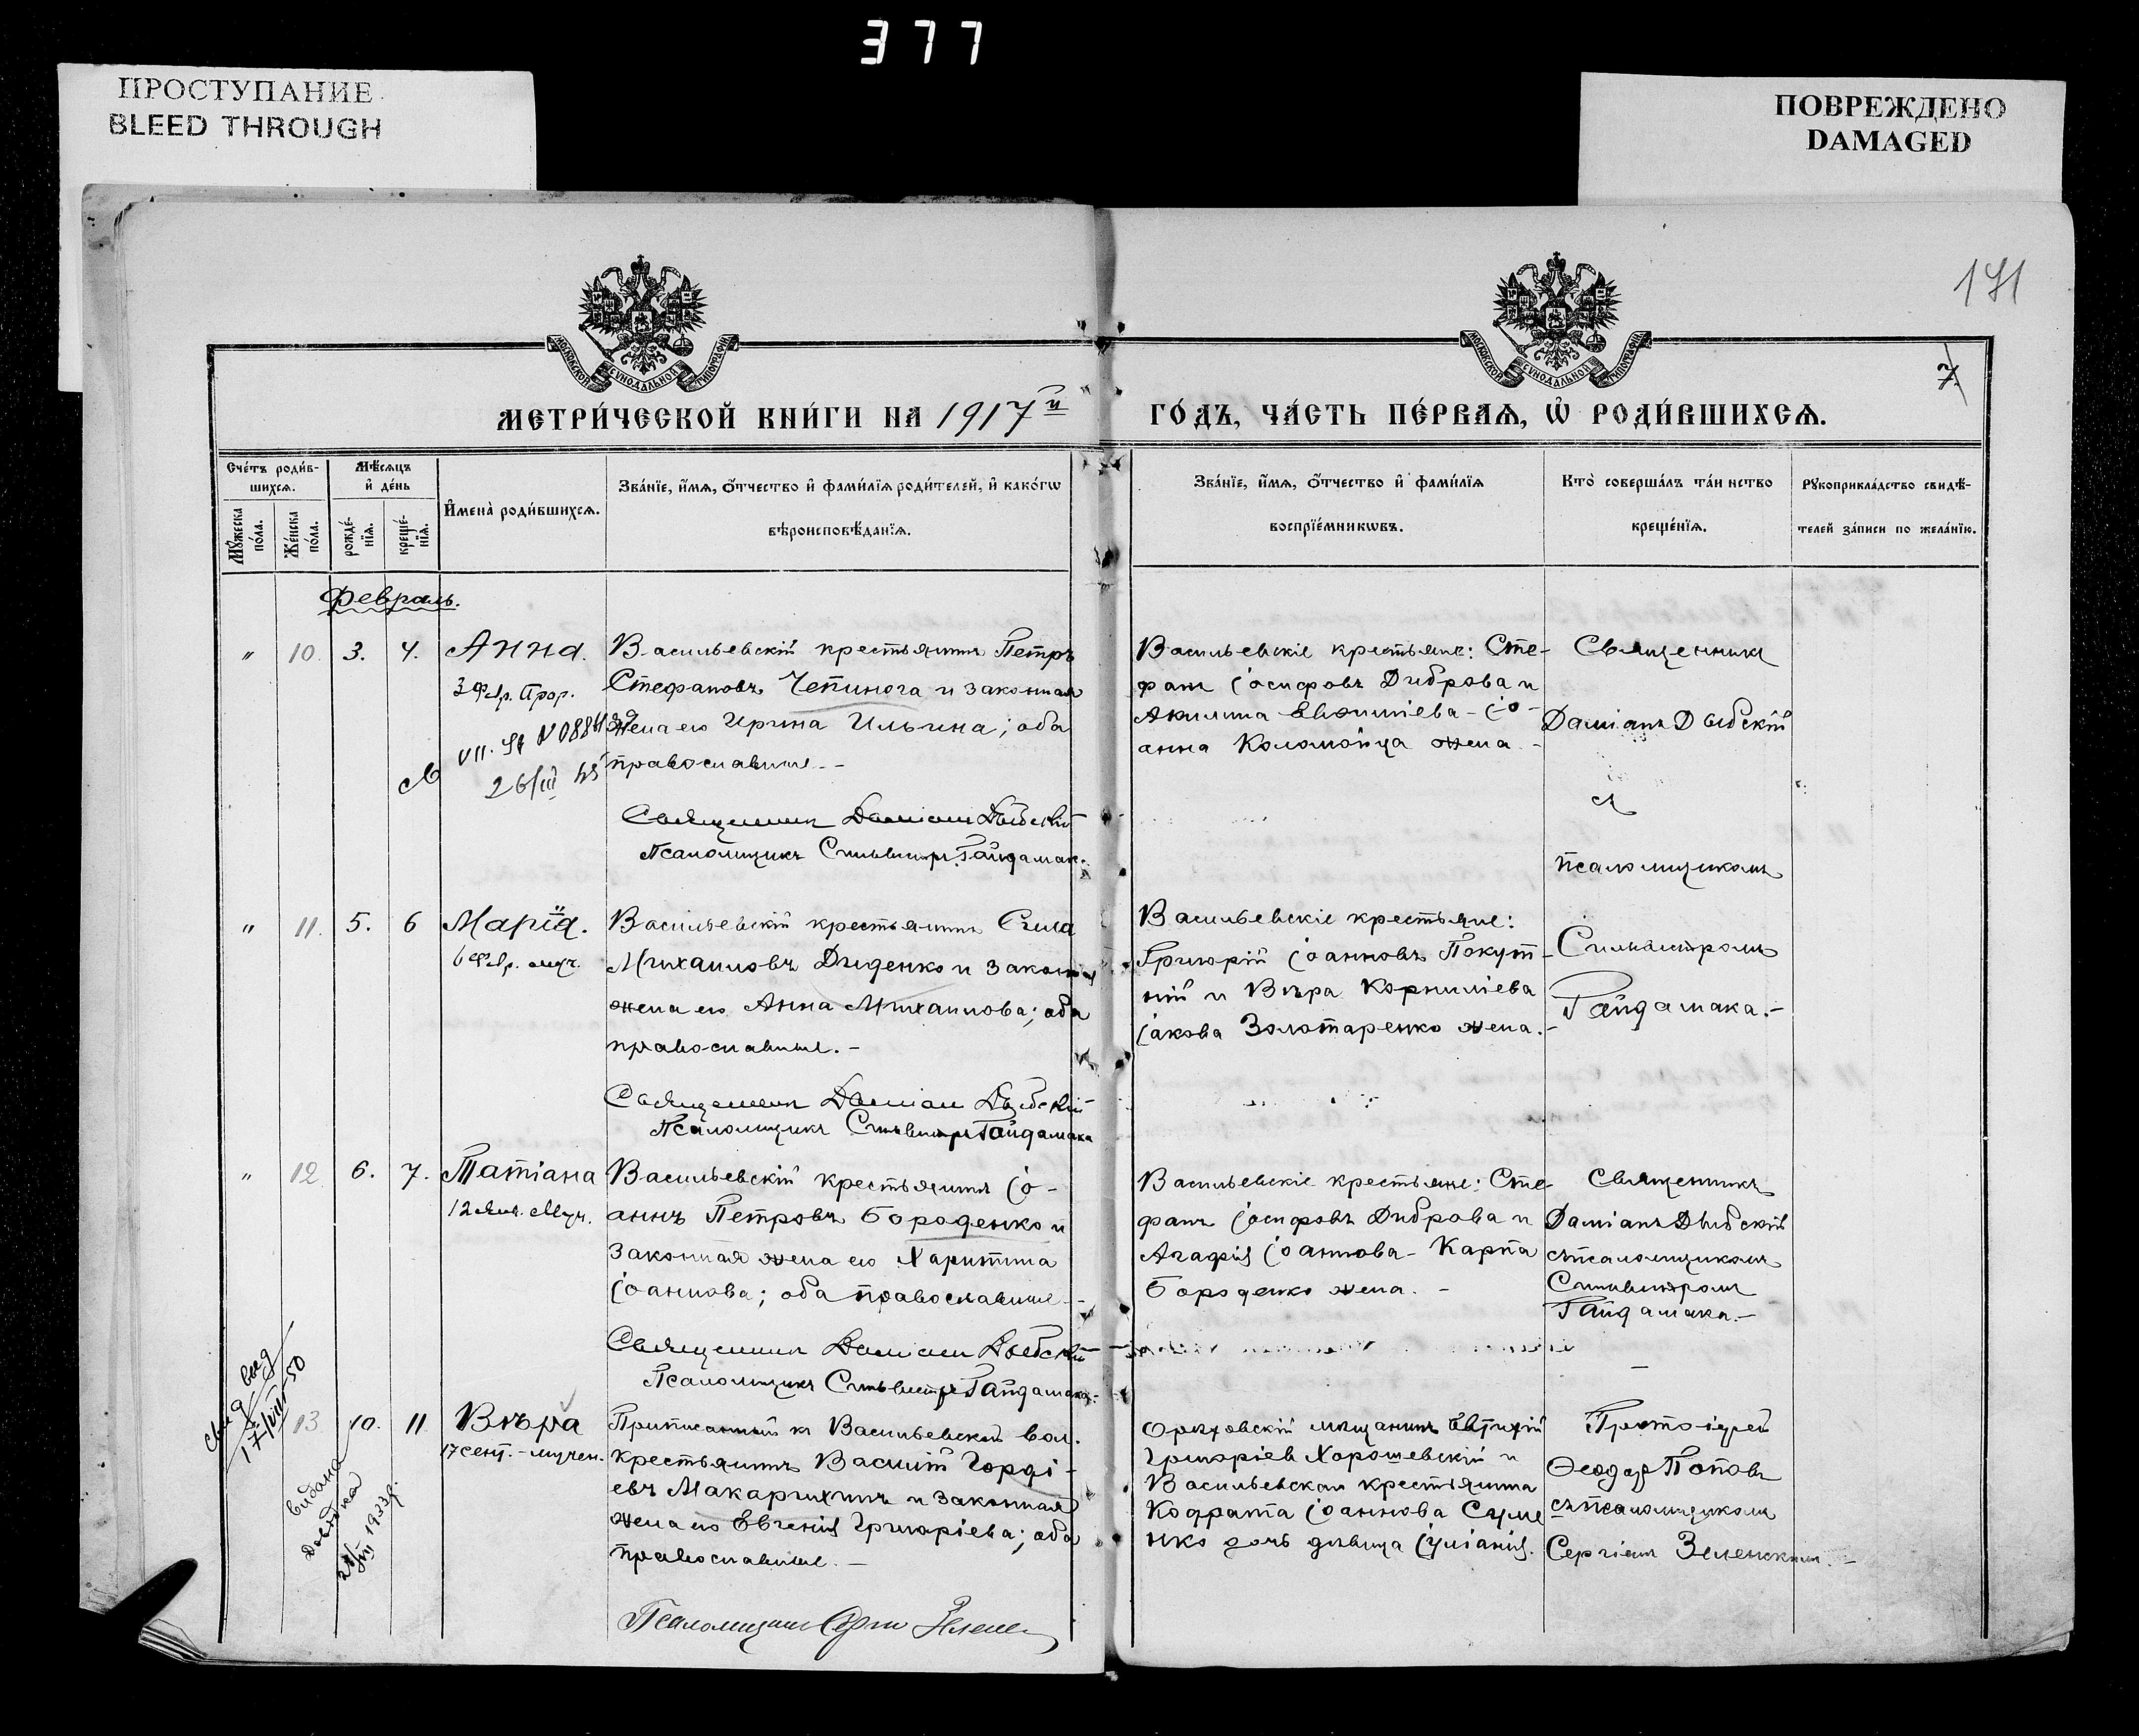 377
ПРОСТУПАНИЕ
BLEED THROUGH
ПОВРЕЖДЕНО
DAMAGED
171
7.
МОСКОВСКОЙ СѴНОДАЛЬНОЙ ТИПОГРАФІИ
МОСКОВСКОЙ СѴНОДАЛЬНОЙ ТИПОГРАФІИ
МЕТРИ́ЧЕСКОЙ КНИ́ГИ НА 1917й
ГО́ДЪ, ЧА́СТЬ ПЕ́РВАѦ, Ѡ҆ РОДИ́ВШИХСѦ.
Сче́тъ роди́в-
шихсѧ.
Мѣ́сѧцъ
и҆ де́нь
Мꙋ́жеска
по́ла.
Же́нска
по́ла.
рожде́-
нїѧ.
креще́-
нїѧ.
И҆мена̀ роди́вшихсѧ.
Зва́нїе, и҆́мѧ, ѻ҆́тчество и҆ фами́лїѧ роди́телей, и҆ како́гѡ
вѣроисповѣ́данїѧ.
Зва́нїе, и҆́мѧ, ѻ҆́тчество и҆ фами́лїѧ
воспрїе́мникѡвъ.
Кто̀ соверша́лъ та́инство
креще́нїѧ.
Рꙋкоприкла́дство свидѣ́-
телей за́писи по жела́нїю.
Февраль.
" 10. 3. 4. Анна.
3 Фвр. Прор.
26/III 45
Васильевскій крестьянинъ Петръ
Стефановъ Чепинога и законная
жена его Ирина Ильина; оба
православные. -
Священникъ Даміанъ Дыбскій
Псаломщикъ Сильвестръ Гайдамак.
Васильевскіе крестьяне: Сте-
фанъ Іосифовъ Диброва и
Акилина Евѳиміева - Іо-
анна Коломойца жена -
Священникъ
Даміанъ Дыбскій
съ
псаломщикомъ
" 11. 5. 6 Марія.
6 Фвр. муч.
Васильевскій крестьянинъ Сила
Михаиловъ Диденко и законная
жена его Анна Михаилова; оба
православные. -
Священникъ Даміанъ Дыбскій
Псаломщикъ Сильвестръ Гайдамака
Васильевскіе крестьяне:
Григорій Іоанновъ Покут-
ній и Вѣра Корниліева
Іакова Золотаренко жена. -
Сильвестромъ
Гайдамака. -
" 12. 6. 7. Татіана
12 Янв. Муч.
Васильевскій крестьянинъ Іо-
аннъ Петровъ Бороденко и
законная жена его Харитина
Іоаннова; оба православные -
Священникъ Даміанъ Дыбскій
Псаломщикъ Сильвестръ Гайдамака -
Васильевскіе крестьяне: Сте-
фанъ Іосифовъ Диброва и
Агафія Іоаннова - Карпа
Бороденко жена. -
Священникъ
Даміанъ Дыбскій
съ псаломщикомъ
Сильвестромъ
Гайдамака. -
свид выд
17/VIII 50
13. 10. 11 Вѣра
17 сент. - мучен.
видана
довідка
VIII 1933р.
Приписанный къ Васильевской вол.
крестьянинъ Василій Горді-
евъ Макарихинъ и законная
жена его Евгенія Григоріева; оба
православные. -
Псаломщикъ Сергій Зелен
Орѣховскій мѣщанинъ Евтихій
Григоріев Хорошевскій и
Васильевская крестьянина
Кодрата Іоаннова Суме
нко дочь дѣвица Іуліанія.
Протоіерей
Ѳеодоръ Поповъ
съ псаломщикомъ
Сергіемъ Зеленскимъ. -